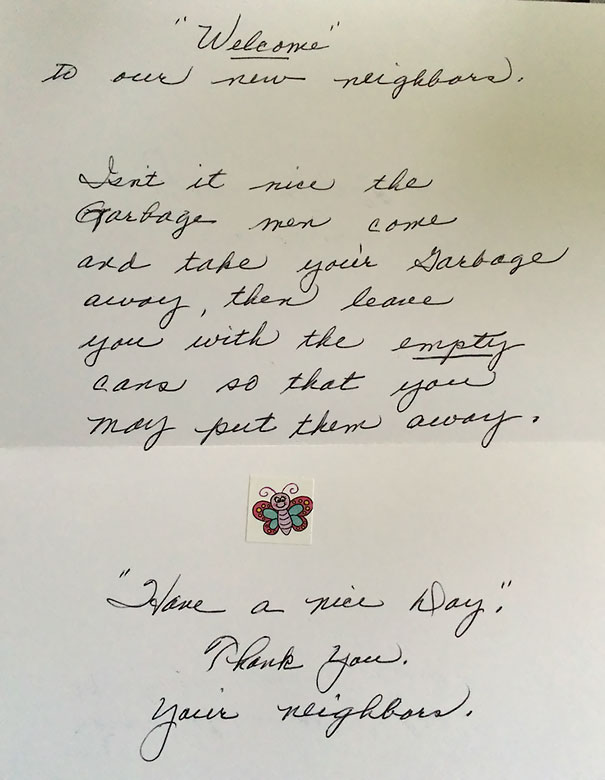 "Welcome"
to our new neighbors.
Isn't it nice the
Garbage men come
and take your Garbage
away, then leave
you with the empty
cans so that you
may put them away.
"Have a nice Day."
Thank you.
Your neighbors.